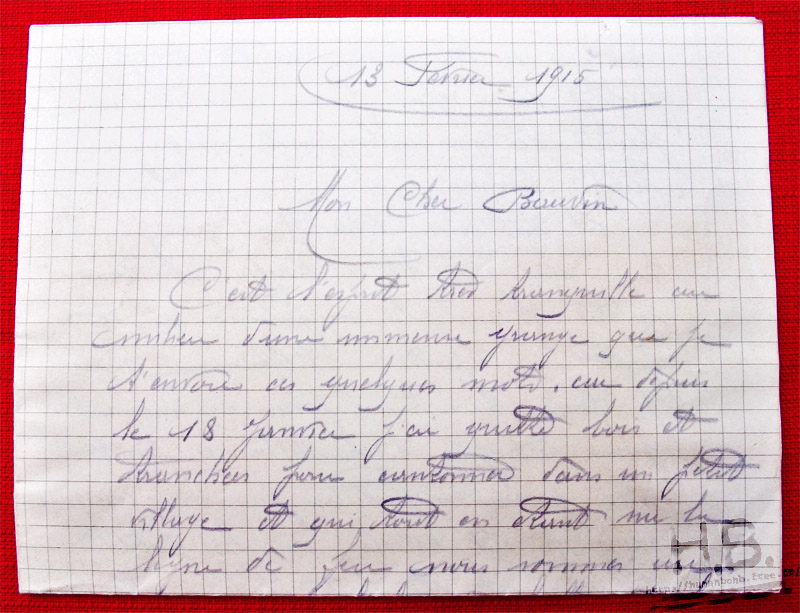 13 Février 1915
Mon Cher Bauvin
C'est l'esprit très tranquille au
milieu d'une immense grange que je
t'envoie ces quelques mots, car depuis
le 18 Janvier j'ai quitté bois et
tranchées pour cantonner dans un petit
village et qui tout en étant sur la
ligne de feu nous sommes
H.B.